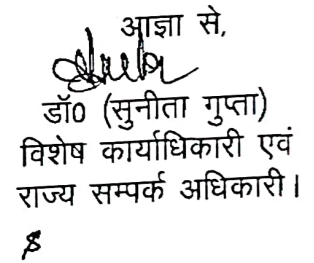 आज्ञा से,
डॉ0 (सुनीता गुप्ता)
विशेष कार्याधिकारी एवं
राज्य सम्पर्क अधिकारी।